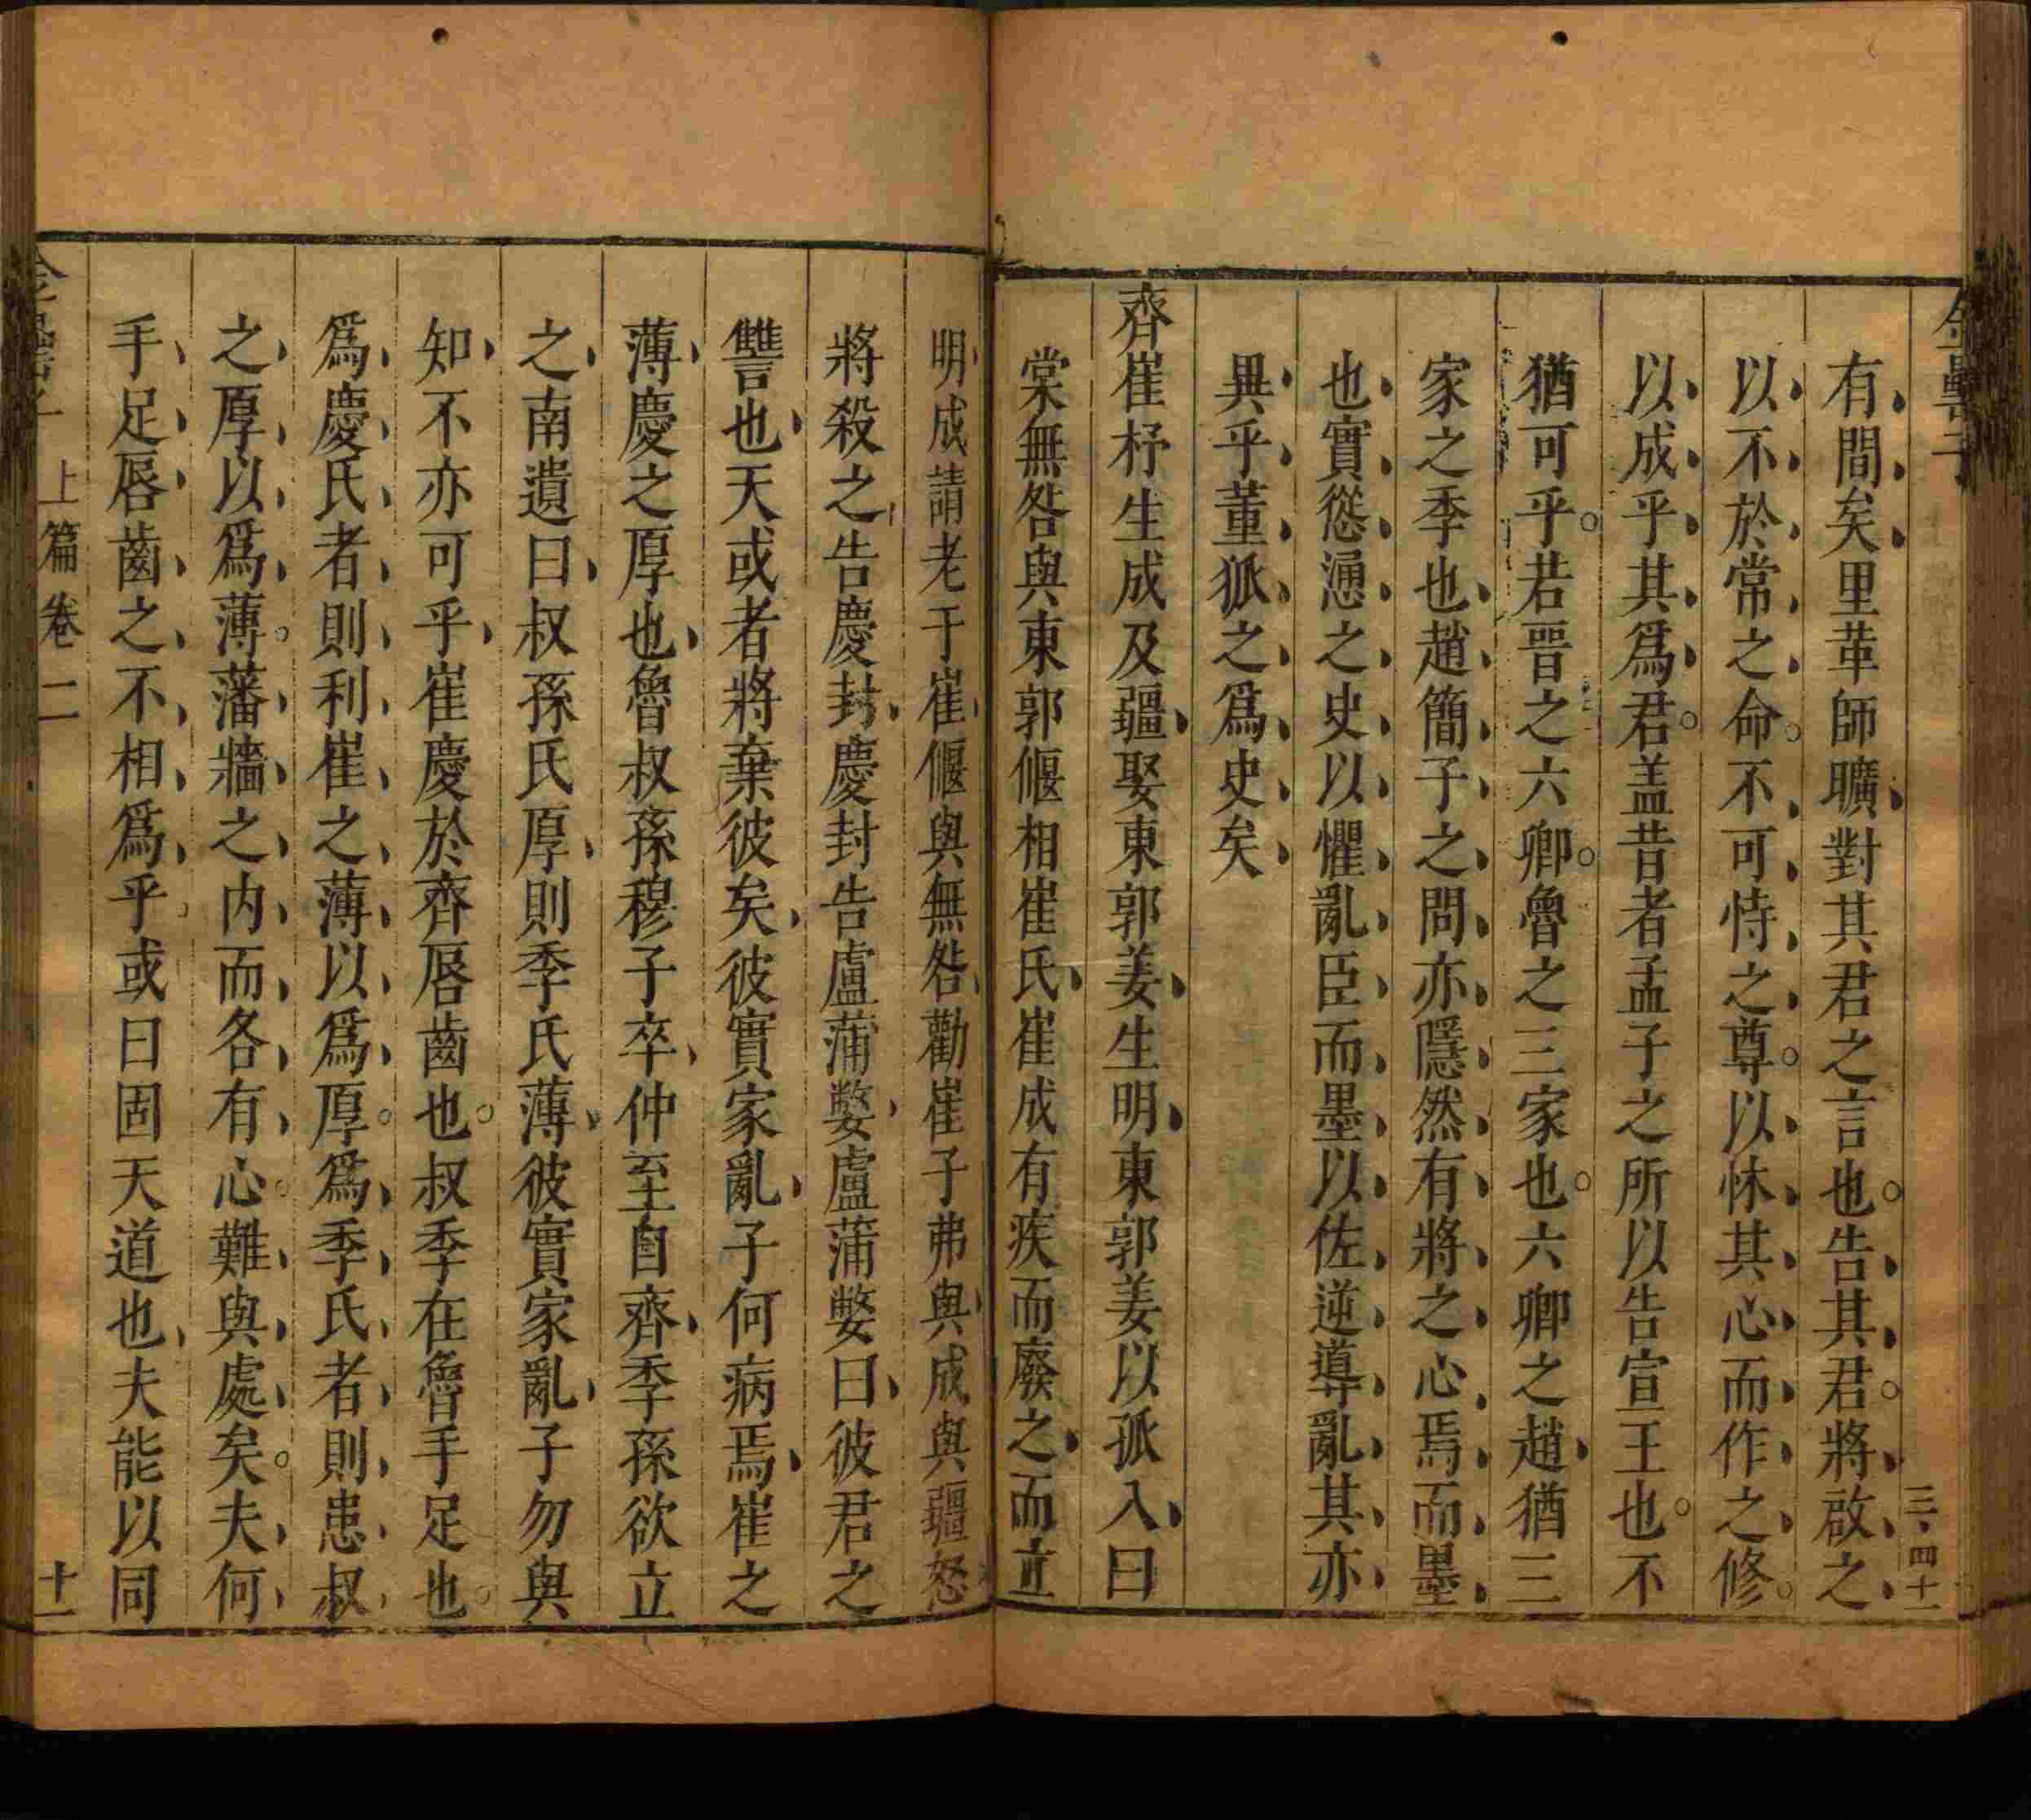 金罍子
三四十
有間矣里革師曠對其君之言也告其君將啟之
以不於常之命不可恃之尊以怵其心而作之修
以成乎其爲君盖昔者孟子之所以告宣王也不
猶可乎若晋之六卿魯之三家也六卿之趙猶三
家之季也趙簡子之問亦隱然有將之心焉而墨
也實慫慂之史以懼亂臣而墨以佐逆導亂其亦
異乎董狐之爲史矣
齊崔杼生成及疆娶東郭姜生明東郭姜以孤入曰
棠無咎與東郭偃相崔氏崔成有疾而廢之而立
明成請老于崔偃與無咎勸崔子弗與成與疆怒
將殺之告慶封慶封告盧蒲嫳盧蒲嫳曰彼君之
讐也天或者將棄彼矣彼實家亂子何病焉崔之
薄慶之厚也魯叔孫穆子卒仲至自齊季孫欲立
之南遺曰叔孫氏厚則季氏薄彼實家亂子勿與
知不亦可乎崔慶於齊唇齒也叔季在魯手足也
爲慶氏者則利崔之薄以爲厚爲季氏者則患叔
之厚以爲薄藩牆之内而各有心難與處矣夫何
手足唇齒之不相爲乎或曰固天道也夫能以同
金罍子 上篇卷二 十一